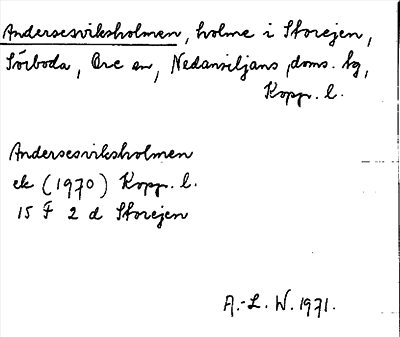 Andersesviksholmen, holme i Storejen,
Sörboda, Ore sn, Nedansiljans doms. tg,
Kopp. l.
Andersesviksholmen
ek (1970) Kopp. l.
15 F 2 d Storejen
A.-L. W. 1971.